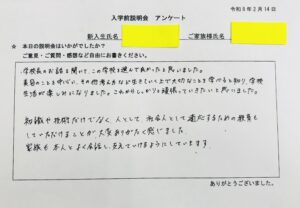 令和6年2月14日
入学前説明会 アンケート
新入生氏名 ご家族様氏名
☆ 本日の説明会はいかがでしたか？
ご意見・ご質問・感想など自由にお書きください。
学校長のお話を聞いて、この学校を選んで良かったと思いました。
美容のこと中心に、その他考え方など生きていく上で大切なことを学べると知り、学校
生活が楽しみになりました。これからしっかり頑張っていきたいと思いました。
知識や技術だけでなく、人として、社会人として通じるための教育も
していただけることが大変ありがたく感じました。
家族も本人とよく会話し、支えていけるようにしています。
ありがとうございました。